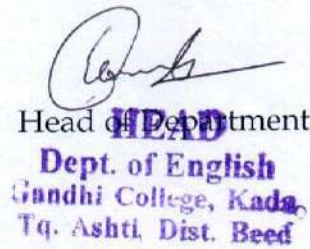 Head of Department
HEAD
Dept. of English
Gandhi College, Kada,
Tq. Ashti, Dist. Beed